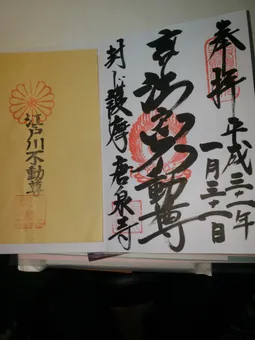 奉拝
平成三十一年
一月三十一日
不動尊
封じ護摩 唐泉寺
江戸川不動尊